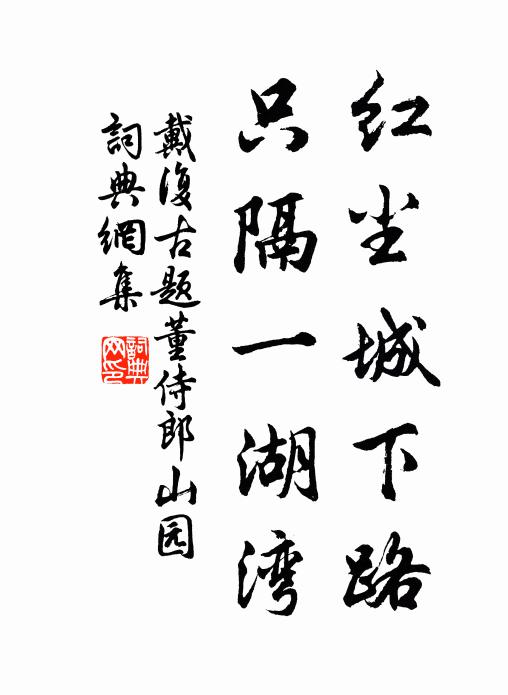 红尘城下路
只隔一湖湾
戴復古题董侍郎山园
詞典網集
詞典网印